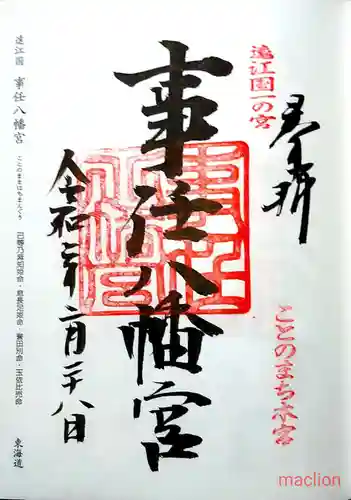 奉拝
遠江國一の宮
ことのまち本宮
事任八幡宮
令和二年二月二十八日
遠江國 事任八幡宮 ことのままはちまんぐう 己等乃麻知比売命・息長足姫命・誉田別命・玉依比売命 東海道
maclion